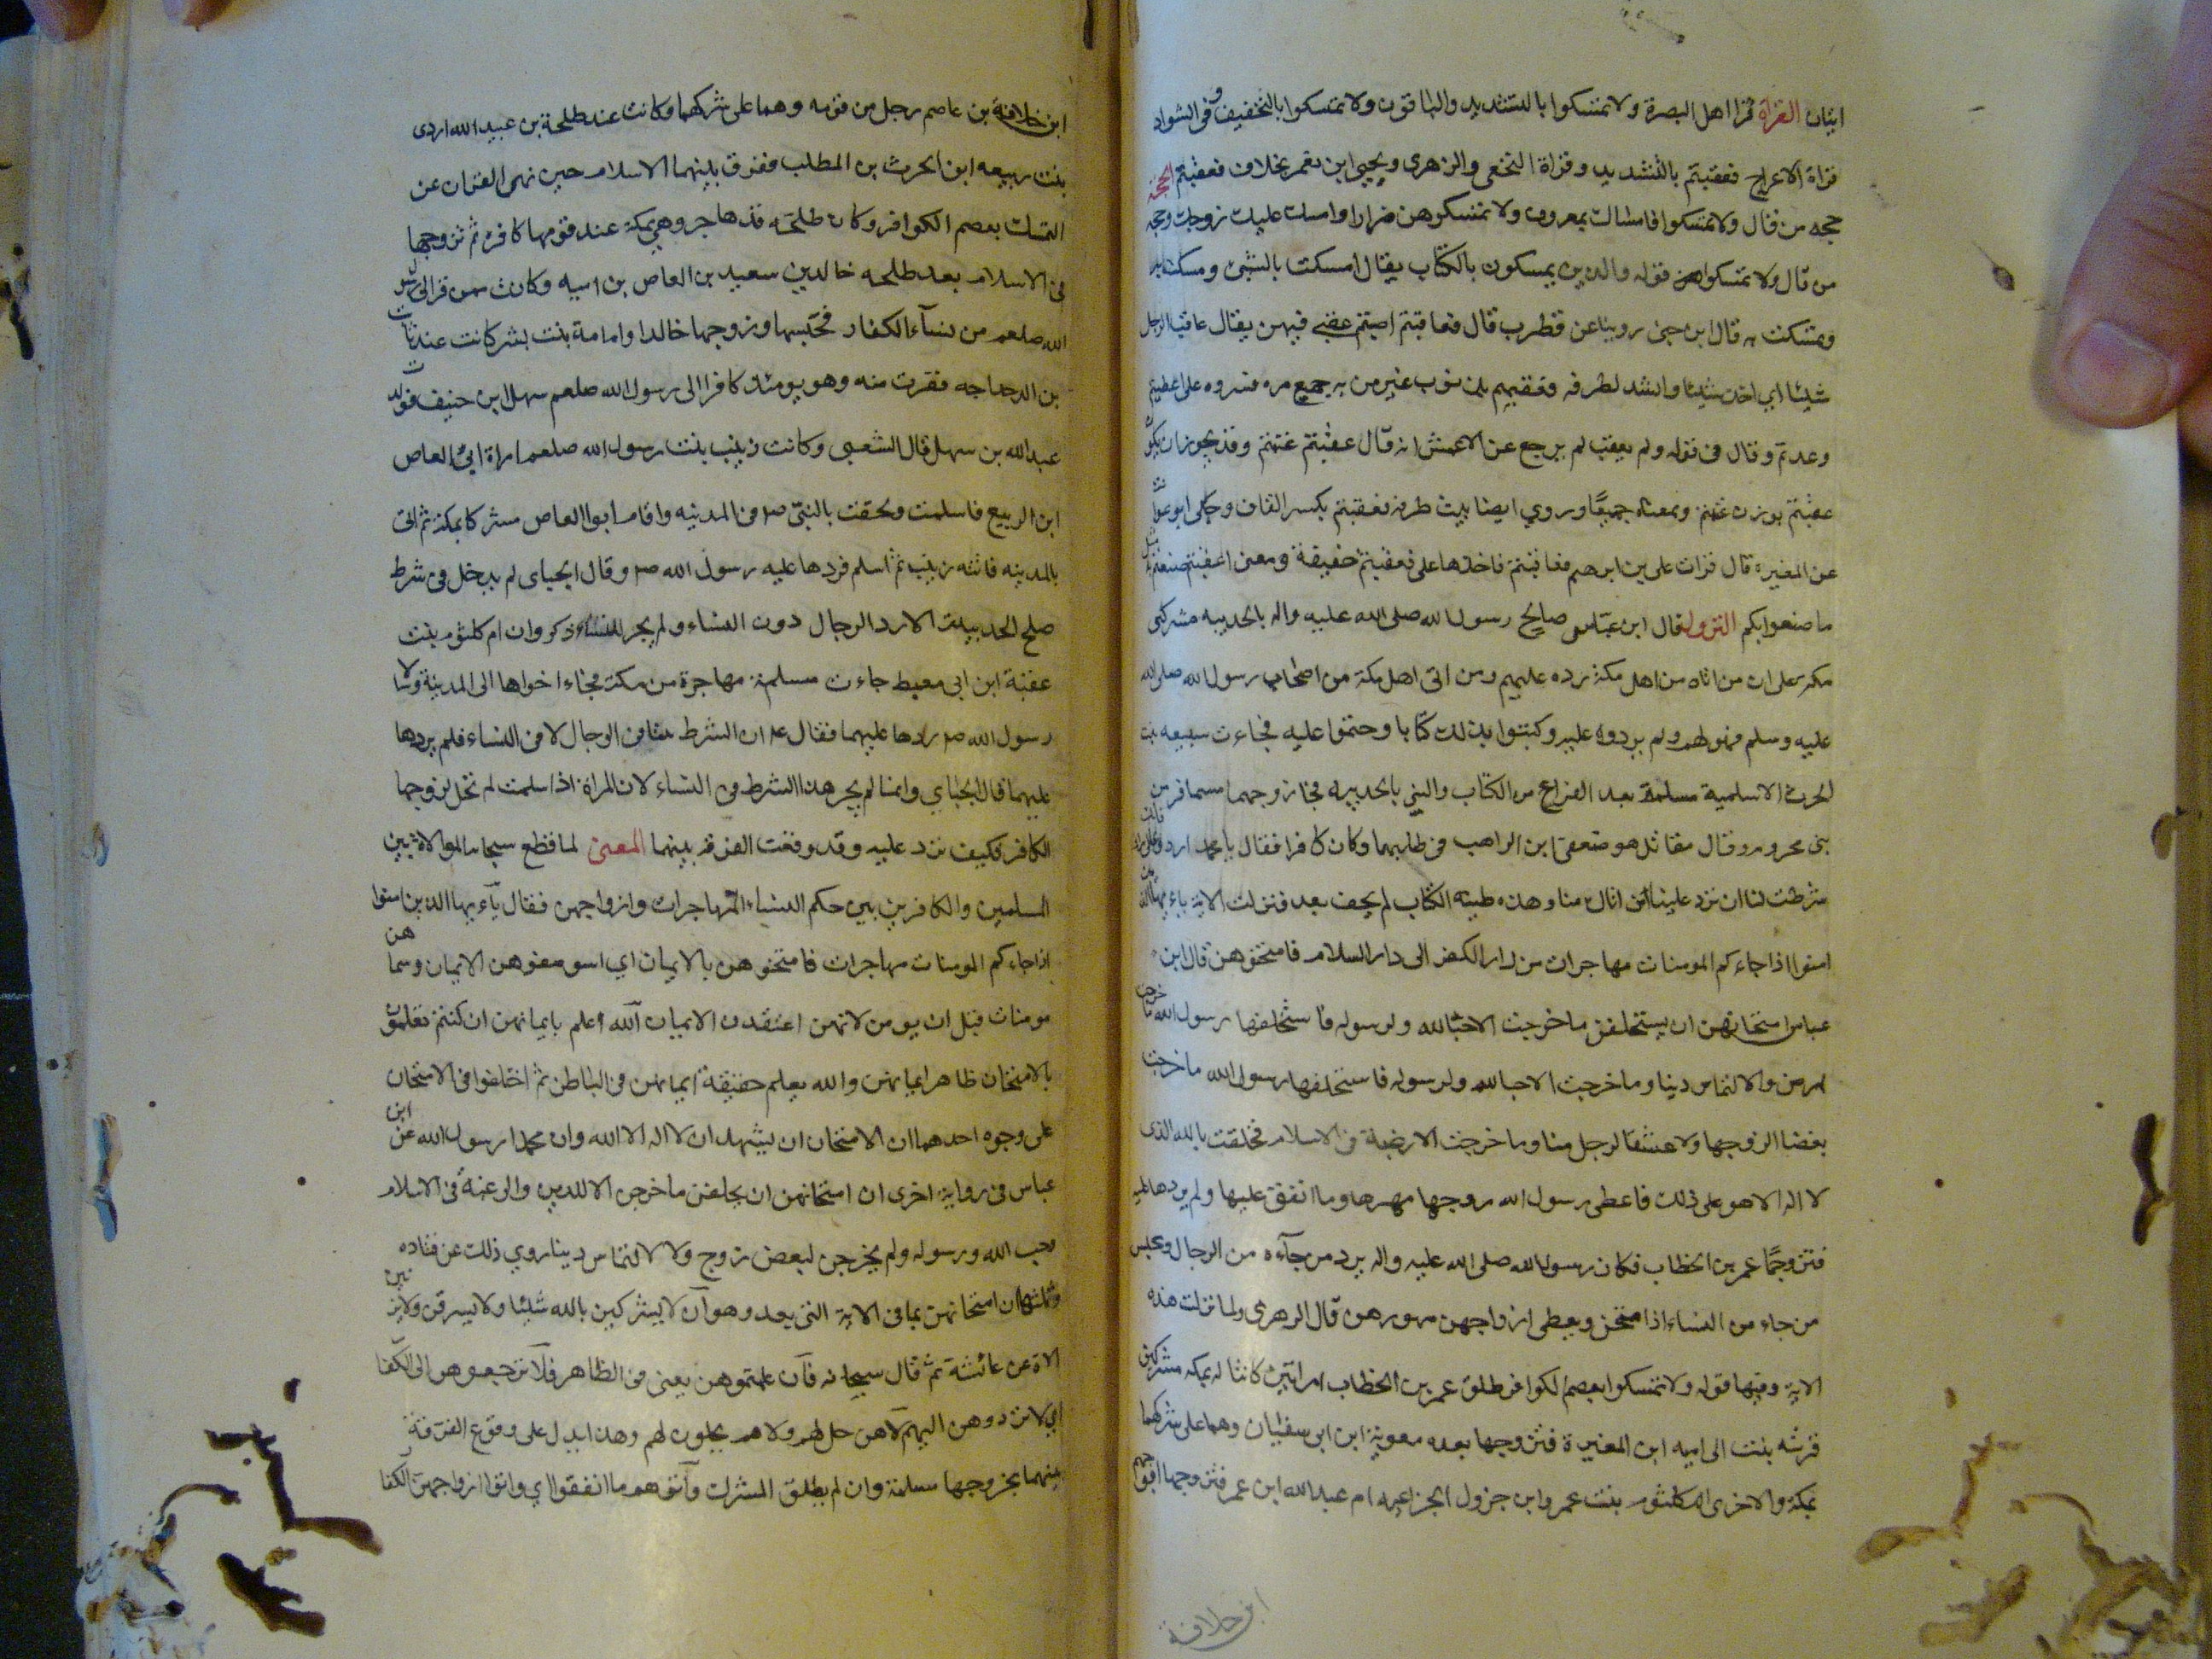 ايتان القراة قرا اهل البصرة ولا تمسكوا بالتشديد والباقون ولا تمسكوا بالتخفيف وفى الشواذ
قراة الاعرج فعقبتم بالتشديد وقراة النخعى والزهرى ويحيى ابن يعمر بخلاف فعقبتم الحجة
حجه من قال ولا تمسكوا فامساك بمعروف ولا تمسكوهن ضرارا وامسك عليك زوجك وحجه
من قال ولا تمسكوا قوله والذين يمسكون بالكتاب يقال امسكت بالشى ومسكت به
وتمسكت به قال ابن جنى روينا عن قطرب قال فعاقبتم اصبتم عقبى فيهن يقال عاقب الرجل
شيئا اي اخذ شيئا وانشد لطرفه فعقبهم بذنوب غير من به جميع مره فسروه على اعطيتم
وعدتم وقال فى قوله ولم يعقب لم يرجع عن الاعمش انه قال عقبتم غنمتم وقد يجوز ان يكون
عقبتم بوزن غنمتم وبمعناه جميعا وروي ايضا بيت طرفه فعقبتم بكسر القاف وحكى ابو عوانة
عن المغيرة قال قرات على بن ابرهيم فعاقبتم فاخذها على فعقبتم خفيفة ومعنى اعقبتم صنعتم مثل
ما صنعوا بكم النزول قال ابن عباس صالح رسول الله صلى الله عليه واله بالحديبه مشركى
مكه على ان من اتاه من اهل مكة رده عليهم ومن اتى اهل مكة من اصحاب رسول الله صلى الله
عليه وسلم فهو لهم ولم يردوه عليه وكتبوا بذلك كتابا وختموا عليه فجاءت سبيعه بنت
الحرث الاسلمية مسلمة بعد الفراغ من الكتاب والنبى بالحديبه فجا زوجها مسافر من
بنى مخزوم وقال مقاتل هو صيفى ابن الراهب فى طلبها وكان كافرا فقال يا محمد اردد على امراتى فانك
شرطت لنا ان ترد علينا من اتاك منا وهذه طينة الكتاب لم يجف بعد فنزلت الاية ياء يها الذين
امنوا اذا جاءكم المومنات مهاجرات من دار الكفر الى دار السلام فامتحنوهن قال ابن
عباس امتحانهن ان يستحلفن ما خرجت الا حبا لله ولرسوله فاستحلفها رسول الله ما خرجت
لارض والا التماس دينا وما خرجت الا حبا لله ولرسوله فاستحلفها رسول الله ما خرجت
بغضا الزوجها ولا عشقا لرجل منا وما خرجت الا رغبة فى الاسلام فحلفت بالله الذى
لا اله الا هو على ذلك فاعطى رسول الله زوجها مهرها وما انفق عليها ولم يردها عليه
فتزوجها عمر بن الخطاب فكان رسول الله صلى الله عليه واله يرد من جآءه من الرجال ويحبس
من جاء من النساء اذا امتحن ويعطى ازواجهن مهورهن قال الزهرى ولما نزلت هذه
الاية وفيها قوله ولا تمسكوا بعصم الكوافر طلق عمر بن الخطاب امراتين كانتا له بمكه مشركين
قرشه بنت ابى اميه ابن المغيرة فتزوجها بعده معوية ابن ابى سفيان وهما على شركهما
بمكة والاخرى ام كلثوم بنت عمرو ابن جزول الخزاعيه ام عبد الله ابن عمر فتزوجها ابو جهم
ابن حلافة
ابن حلافة بن عاصم رجل من قومه وهما على شركهما وكانت عند طلحة بن عبيد الله اردى
بنت ربيعه ابن الحرث بن المطلب ففرق بينهما الاسلام حين نهى القران عن
التمسك بعصم الكوافر وكان طلحه قد هاجر وهى بمكة عند قومها كافره ثم تزوجها
فى الاسلام بعد طلحه خالد بن سعيد بن العاص بن اميه وكانت ممن فر الى رسول
الله صلعم من نسآء الكفار فحبسها وزوجها خالدا وامامة بنت بشر كانت عند ثابت
بن الدحداحه ففرت منه وهو يومئذ كافرا الى رسول الله صلعم سهل ابن حنيف فولدت
عبد الله بن سهل قال الشعبى وكانت زينب بنت رسول الله صلعم امراة ابى العاص
ابن الربيع فاسلمت ولحقت بالنبى ص فى المدينه واقام ابوا العاص مشركا بمكة ثم اتى
بالمدينه فامنته زينب ثم اسلم فردها عليه رسول الله ص وقال الجباى لم يدخل فى شرط
صلح الحديبية الا رد الرجال دون النساء ولم يجر للنساء ذكر وان ام كلثوم بنت
عقبة ابن ابى معيط جاءت مسلمة مهاجرة من مكة فجاء اخواها الى المدينة وسالا
رسول الله ص ردها عليهما فقال ع ان الشرط بيننا فى الرجال لا فى النساء فلم يردها
عليهما قال الجباي وانما لم يجر هذا الشرط فى النساء لان المراة اذا اسلمت لم تحل لزوجها
الكافر فكيف ترد عليه وقد وقعت الفرقة بينهما المعنى لما قطع سبحانه الموالاة بين
المسلمين والكافرين بين حكم النساء المهاجرات وازواجهن فقال ياء يها الذين امنوا
اذا جاءكم المومنات مهاجرات فامتحنوهن بالايمان اي استوصفوهن الايمان وسماهن
مومنات قبل ان يومن لانهن اعتقدن الايمان الله اعلم بايمانهن ان كنتم تعلمون
بالامتحان ظاهر ايمانهن والله يعلم حقيقة ايمانهن فى الباطن ثم اختلفوا فى الامتحان
على وجوه احدهما ان الامتحان ان يشهدن ان لا اله الا الله وان محمدا رسول الله عن ابن
عباس فى رواية اخرى ان امتحانهن ان يحلفن ما خرجن الا للدين والرغبة فى الاسلام
لحب الله ورسوله ولم يخرجن لبغض زوج ولا لالتماس دينا روي ذلك عن قتاده
وثالثها ان امتحانهن بما فى الاية التى بعد وهو ان لا يشركن بالله شيئا ولا يسرقن ولا يزنين
الاة عن عائشة ثم قال سبحانه فان علمتموهن يعنى فى الظاهر فلا ترجعوهن الى الكفا
اي لا تردوهن اليهم لا هن حل لهم ولا هم يحلون لهم وهذا يدل على وقوع الفرقة
بينهما بخروجها مسلمة وان لم يطلق المشرك وآتوهم ما انفقوا اي واتوا ازواجهن الكفا